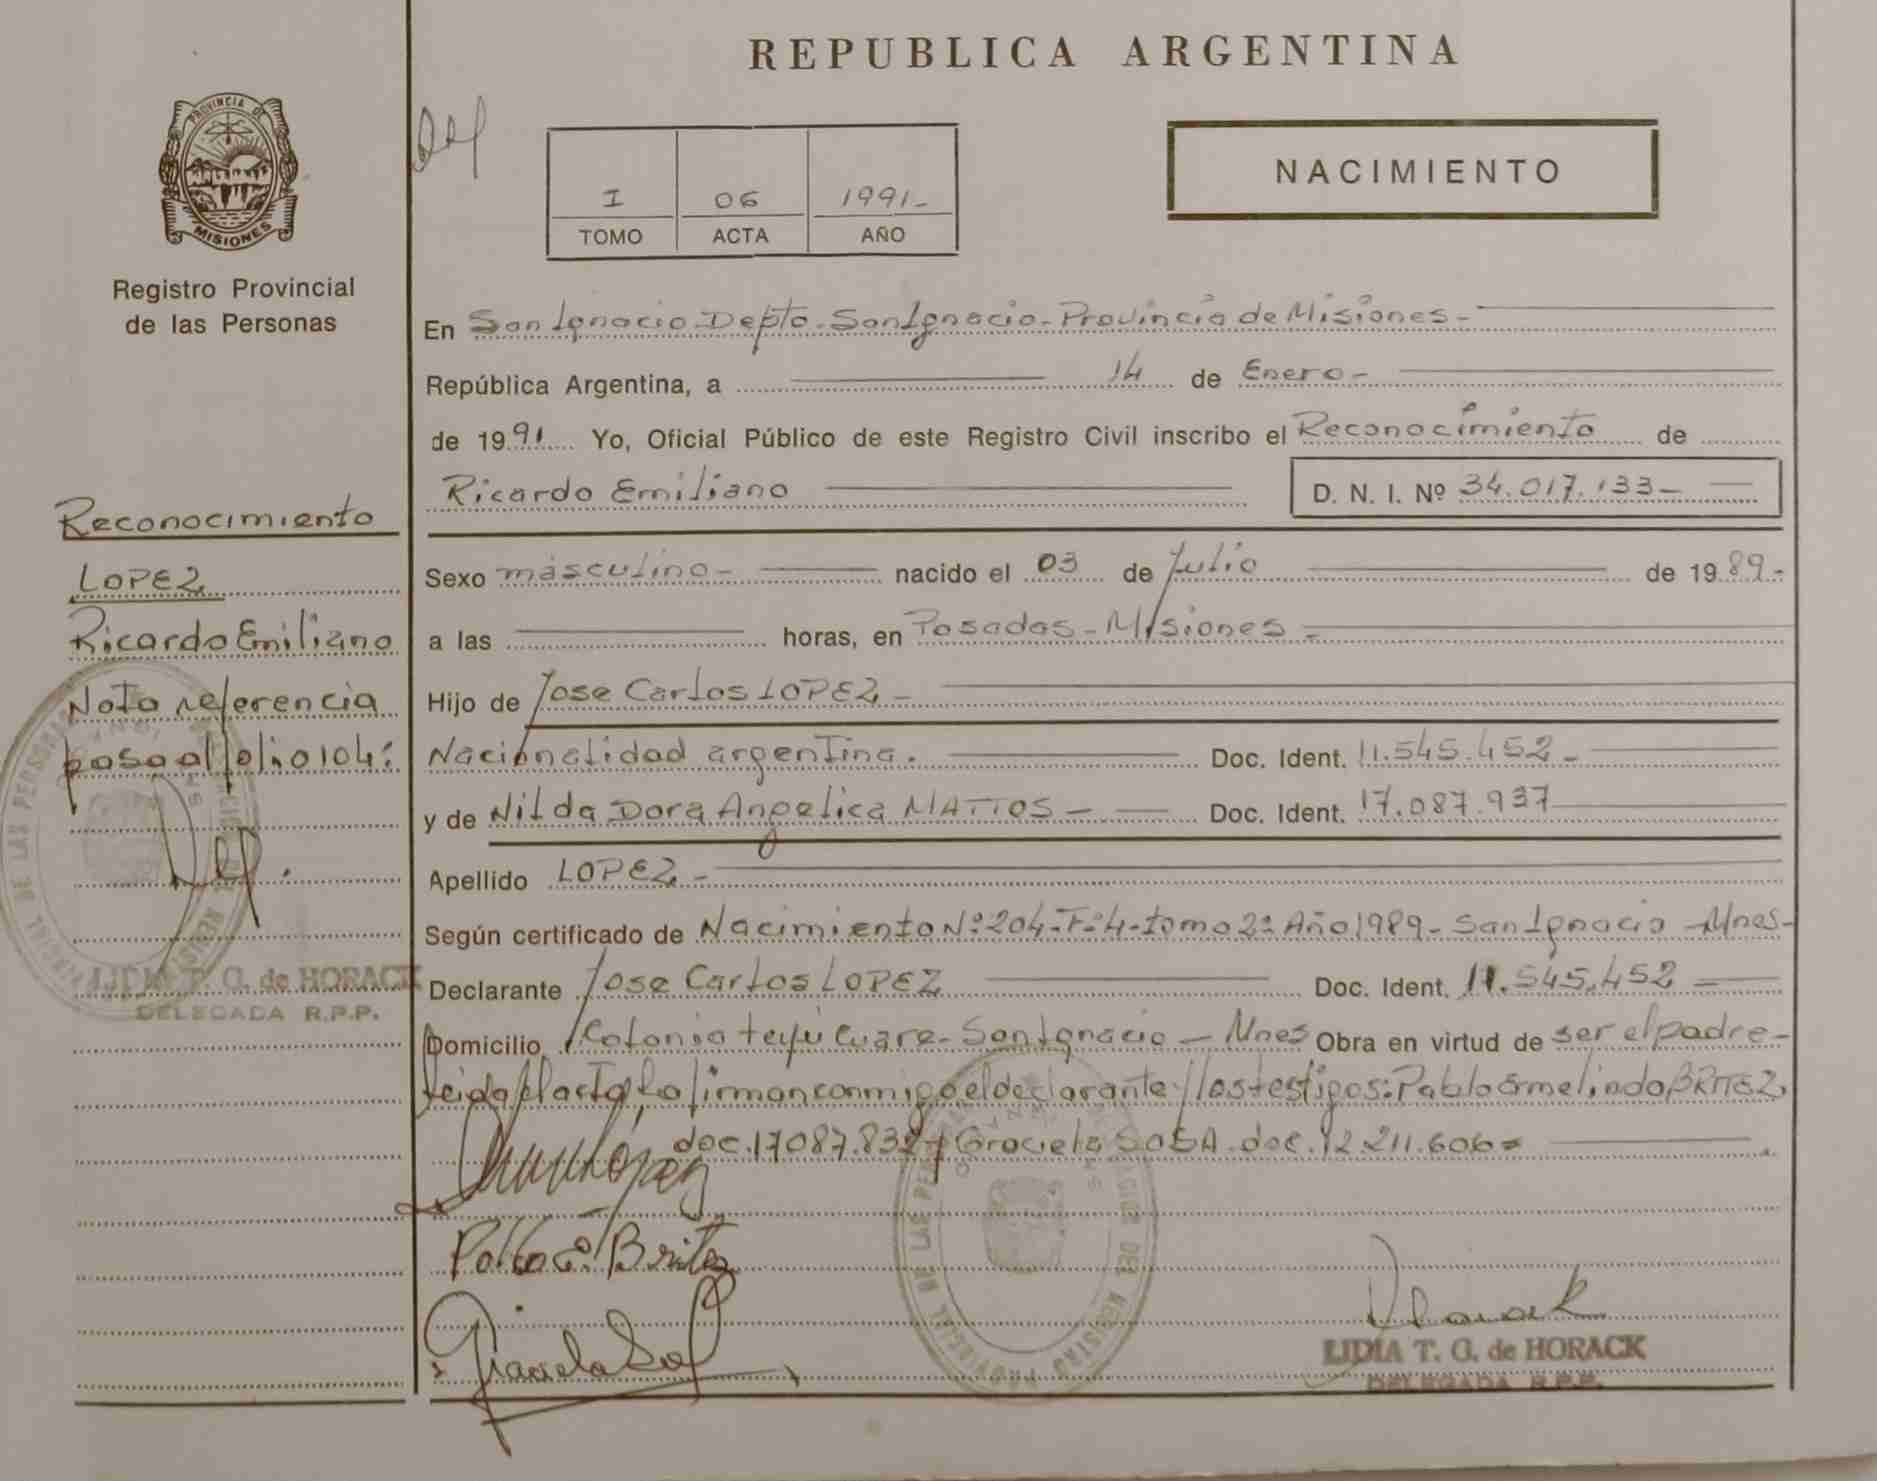 REPUBLICA ARGENTINA
PROVINCIA DE
MISIONES
Registro Provincial
de las Personas
I 06 1991-
TOMO ACTA AÑO
NACIMIENTO
En San Ignacio Depto. San Ignacio - Provincia de Misiones -
República Argentina, a 14 de Enero -
de 1991 Yo, Oficial Público de este Registro Civil inscribo el Reconocimiento de
Ricardo Emiliano D. N. I. Nº 34.017.133-
Sexo masculino - nacido el 03 de Julio de 1989-
a las horas, en Posadas - Misiones -
Hijo de Jose Carlos LOPEZ -
Nacionalidad argentina. Doc. Ident. 11.545.452 -
y de Nilda Dora Angelica MATTOS - Doc. Ident. 17.087.937
Apellido LOPEZ -
Según certificado de Nacimiento Nº 204-Fº4-tomo 2º Año 1989- San Ignacio - Mnes-
Declarante Jose Carlos LOPEZ Doc. Ident. 11.545.452 -
Domicilio Colonia teyú Cuare - San Ignacio - Mnes Obra en virtud de ser el padre -
leida el acta, la firman conmigo el declarante y los testigos: Pablo Ermelindo BRITEZ,
doc. 17087.832 y Graciela SOSA. doc. 12.211.606=
Reconocimiento
LOPEZ
Ricardo Emiliano
Nota referencia
pasa al folio 104:
LIDIA T. G. de HORACK
DELEGADA R.P.P.
López
Pablo E. Britez
Graciela Sosa
LIDIA T. G. de HORACK
DELEGADA R.P.P.